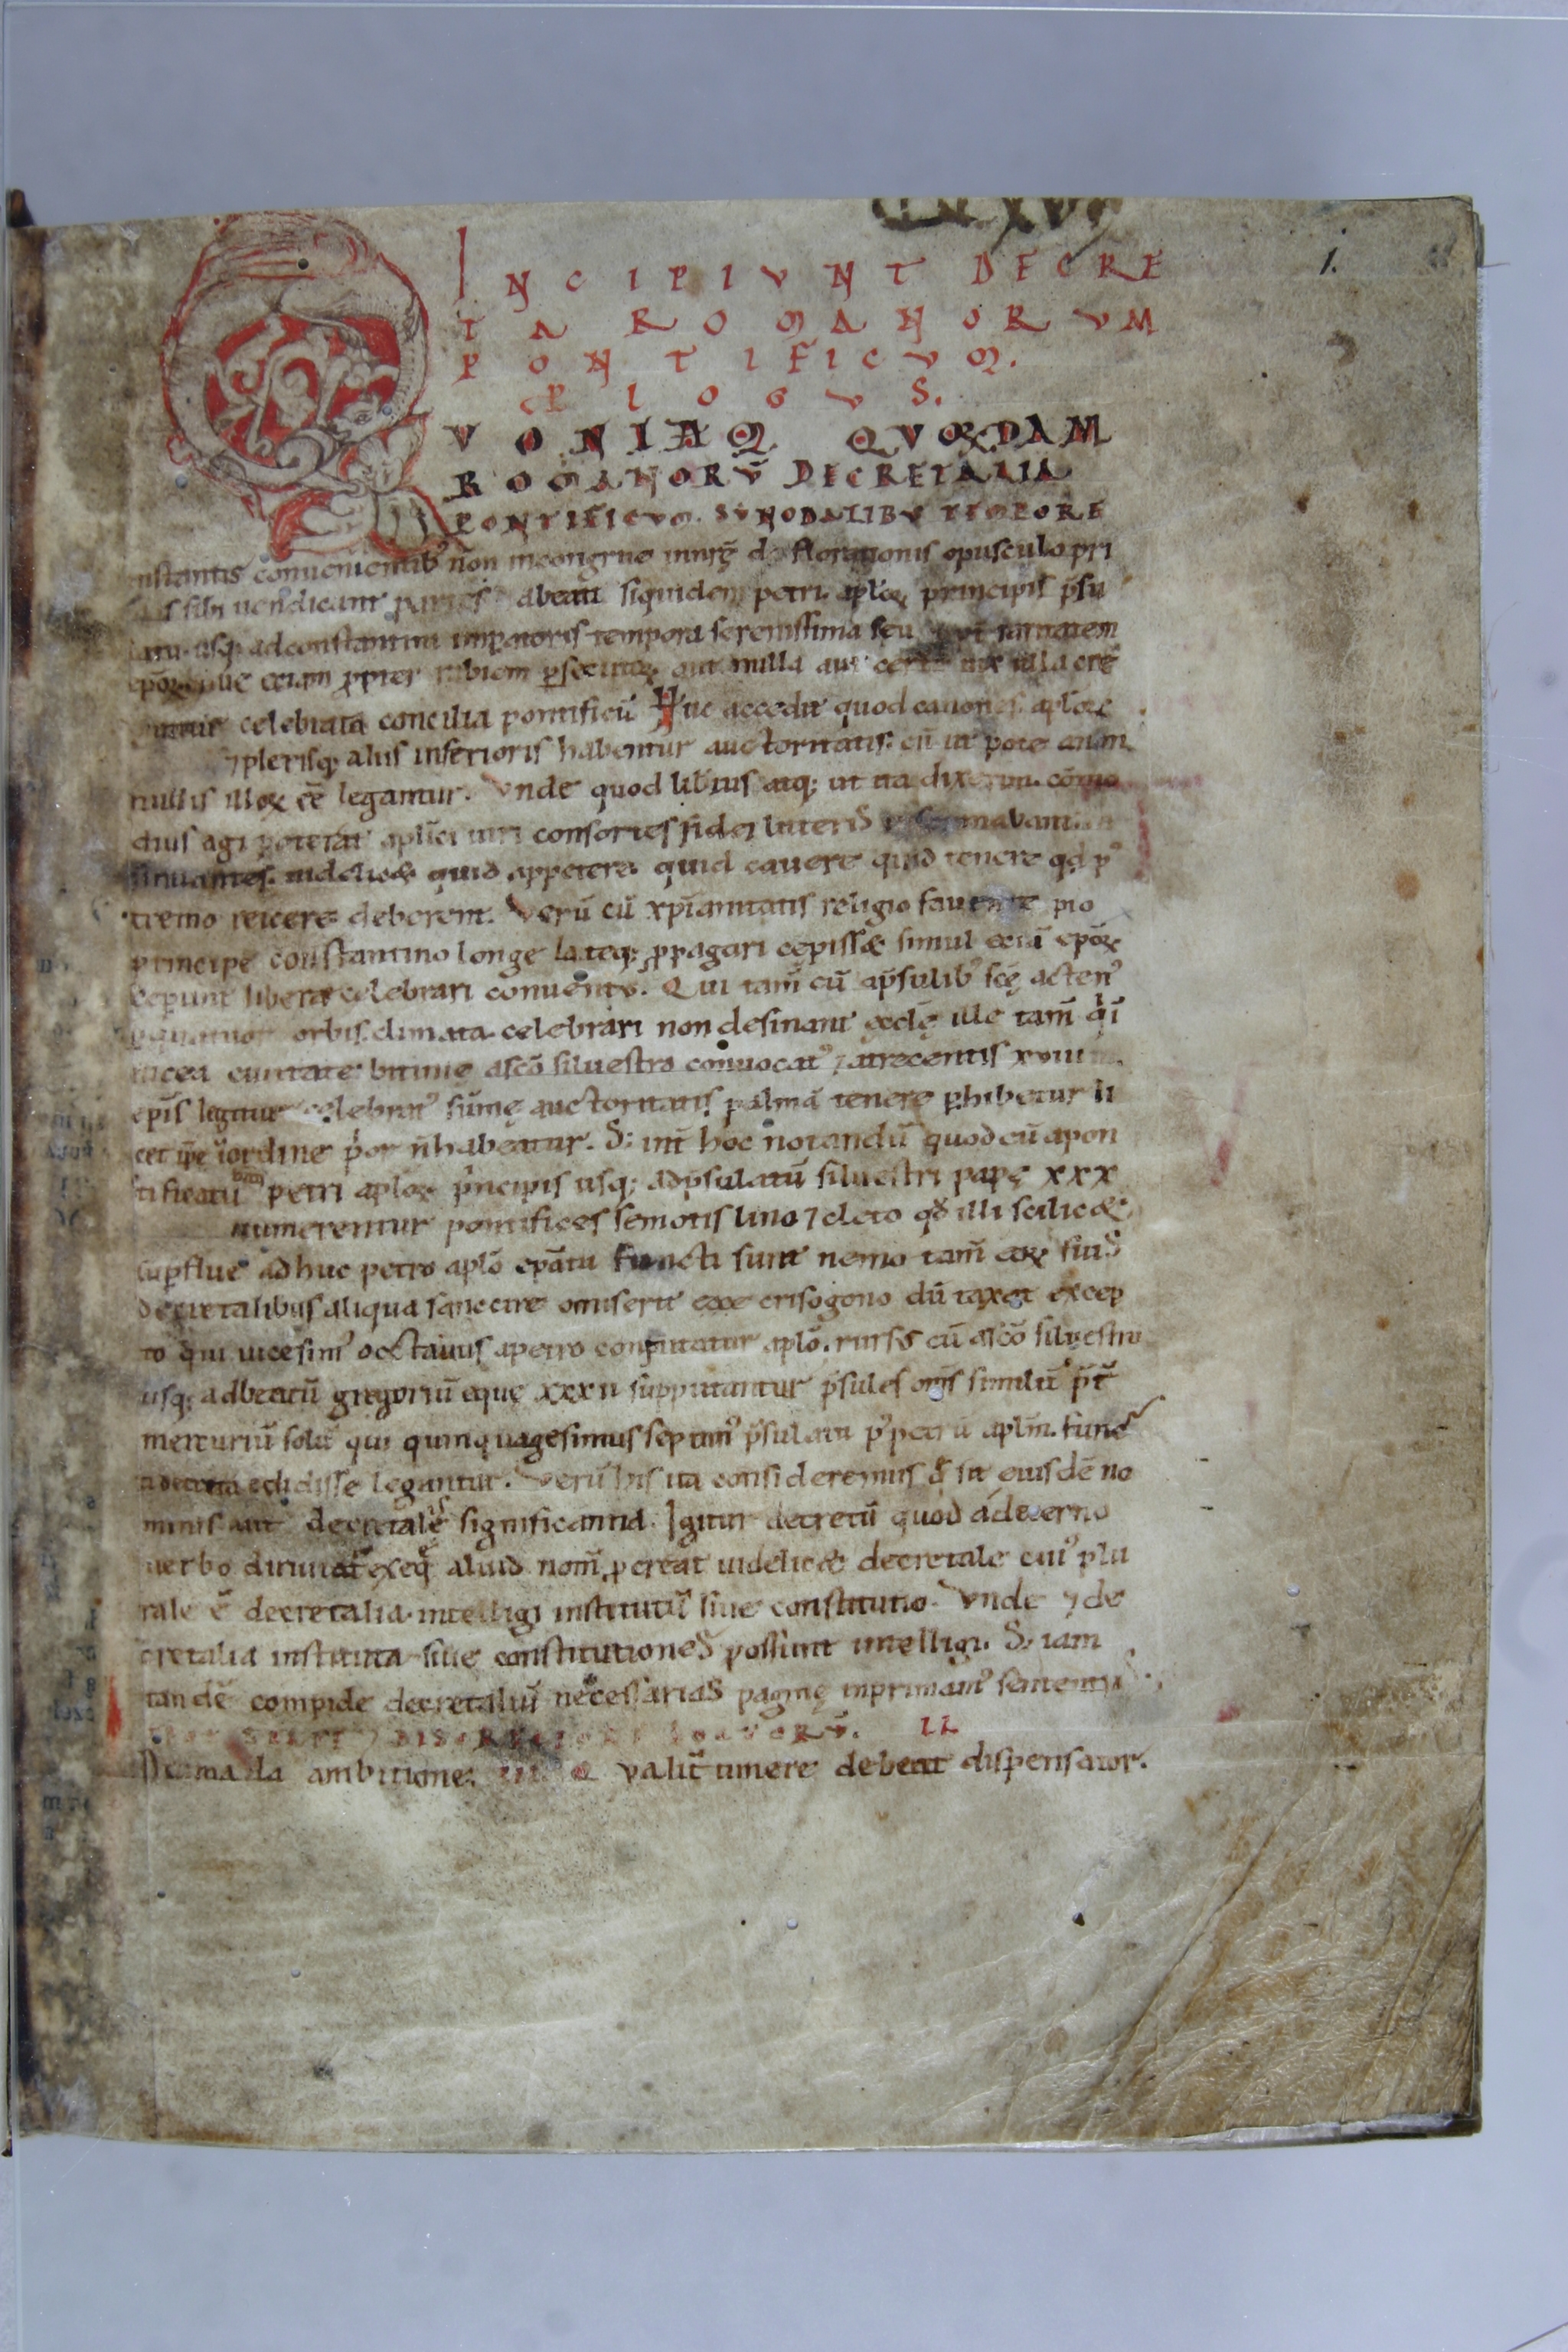 1.
INCIPIVNT DECRE
TA ROMANORVM
PONTIFICVM.
PLOGVS.
QVONIAM QVORDAM
ROMANORV̄ DECRETALIA
PONTIFICVM. SYNODALIBVS TEMPORE
instantis conuenientib' non incongrue
sibi uendicant partes beati siquidem petri. aplꝝ principis p̄su
latu usq; ad constantini impatoris tempora serenissima seu
etiam ꝓpter rabiem ꝑsecutoꝝ aut nulla aut certe uix ulla
celebrata concilia pontificū Huc accedit quod canones aploꝝ
⁊ plerisq; aliis inferioris habentur auctoritatis: cū ut pote a non
nullis illoꝝ ēē legantur. Vnde quod libtius atq; ut ita dixerim. cōmo
dius agi poterat aplīci uiri consortes fidei litteris
sinuantes. uidelicet quid appetere quid cauere quid tenere qd p'
tremo reicere deberent. Verū cū xp̄ianitatis religio fauente pio
principe constantino longe lateq; ꝓpagari cepisset simul etiā ep̄oꝝ
ceperunt libere celebrari conuentus. Qui tam̄ cū ap̄sulib' scę acten'
ꝑ quatuor orbis climata celebrari non desinant ęcclę ille tam̄ qi
nicea ciuitate bitinie a scō siluestro conuocat' ⁊ a trecentis xviii
ep̄is legitur celebrat' sūmę auctoritatis palmā tenere ꝑhibetur li
cet ip̄e iordine p̍or n̄ habeatur. S; int̄ hoc notandū quod cū a pon
tificatū petri aploꝝ p̍ncipis usq; ad p̄sulatū siluestri papę xxx
numerentur pontifices semotis lino ⁊ cleto qd̄ illi scilicet
suꝑflue adhuc petro aplō ep̄atu functi sunt nemo tam̄ eoꝝ suis
decretalibus aliqua sanccire omiserit crisogono dū taxat excep
to qui uicesim' octauus a petro computatur aplō. rursus cū a scō siluestro
usq; ad beatū gregoriū eque xxxii supputantur p̄sules om̄s similit̄ p̄t̄
mercuriū solū qui quinquagesimus septim' p̄sulatu p' petrū aplm̄. funct'
decreta edidisse legantur. Verū his ita consideremus
minis aut decretales significantia. Igitur decretū quod a decerno
uerbo diriuat' exeq' aliud nom̄ ꝓcreat uidelicet decretale cui' plu
rale ē decretalia intelligi institutū siue constitutio. Vnde ⁊ de
cretalia instituta siue constitutiones possunt intelligi. S; iam
tandē compide decretaliū necessarias paginę inprimam' sententias
II
De mala ambitione. Q valit̄ timere debeat dispensator.